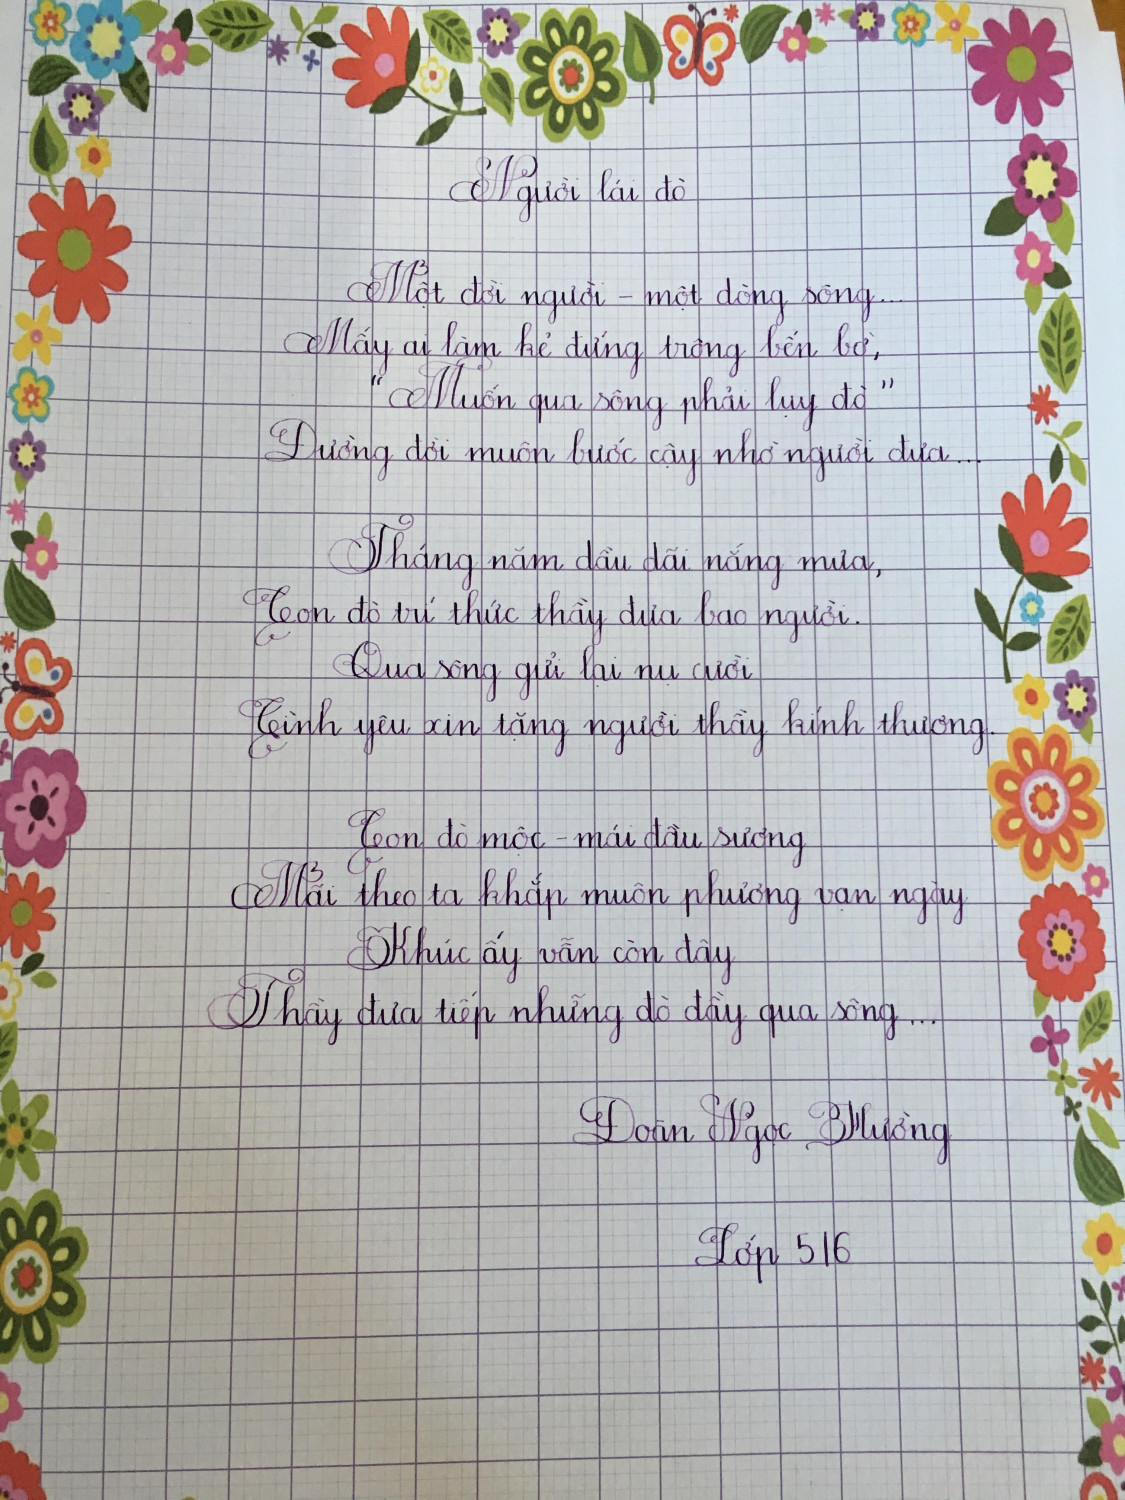 Người lái đò
Một đời người - một dòng sông...
Mấy ai làm kẻ đứng trông bến bờ,
"Muốn qua sông phải lụy đò"
Đường đời muôn bước cậy nhờ người đưa...
Tháng năm dầu dãi nắng mưa,
Con đò trí thức thầy đưa bao người.
Qua sông gửi lại nụ cười
Tình yêu xin tặng người thầy kính thương.
Con đò mộc - mái đầu sương
Mãi theo ta khắp muôn phương vạn ngày
Khúc ấy vẫn còn đây
Thầy đưa tiếp những đò đầy qua sông...
Đoàn Ngọc Hường
Lớp 5/6